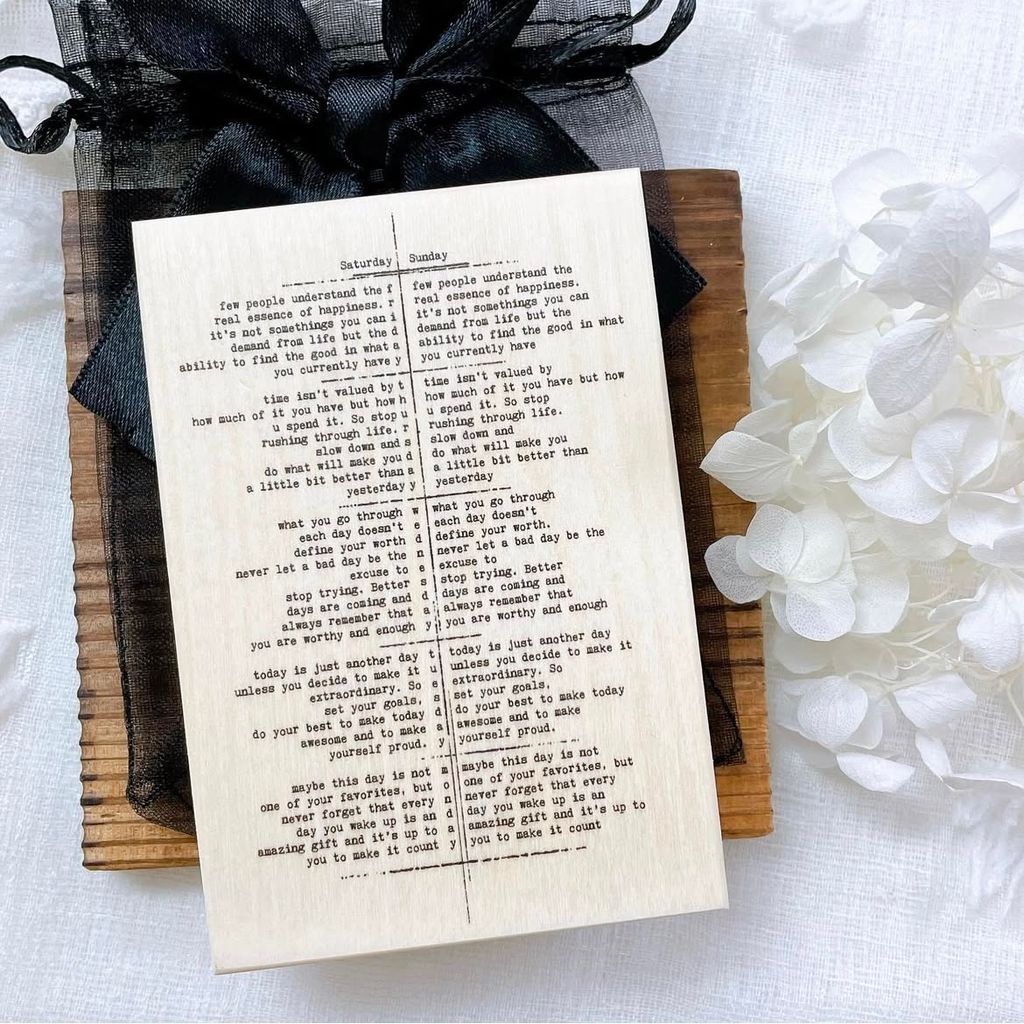 Saturday
Sunday
few people understand the
real essence of happiness.
it's not somethings you can
demand from life but the
ability to find the good in what
you currently have
friday
few people understand the
real essence of happiness.
it's not somethings you can
demand from life but the
ability to find the good in what
you currently have
time isn't valued by
how much of it you have but how
u spend it. So stop
rushing through life.
slow down and
do what will make you
a little bit better than
yesterday
thursday
time isn't valued by
how much of it you have but how
u spend it. So stop
rushing through life.
slow down and
do what will make you
a little bit better than
yesterday
what you go through
each day doesn't
define your worth
never let a bad day be the
excuse to
stop trying. Better
days are coming and
always remember that
you are worthy and enough
wednesday
what you go through
each day doesn't
define your worth.
never let a bad day be the
excuse to
stop trying. Better
days are coming and
always remember that
you are worthy and enough
today is just another day
unless you decide to make it
extraordinary. So
set your goals,
do your best to make today
awesome and to make
yourself proud.
tuesday
today is just another day
unless you decide to make it
extraordinary. So
set your goals,
do your best to make today
awesome and to make
yourself proud.
maybe this day is not
one of your favorites, but
never forget that every
day you wake up is an
amazing gift and it's up to
you to make it count
monday
maybe this day is not
one of your favorites, but
never forget that every
day you wake up is an
amazing gift and it's up to
you to make it count